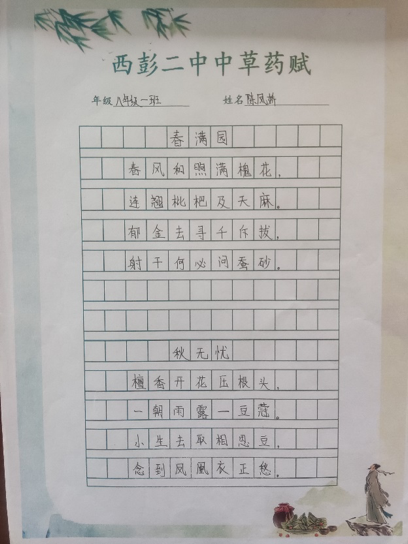 西彭二中中草药赋
年级 八年级一班 姓名 陈凤
春满园
春风和照满槐花，
连翘枇杷及天麻。
郁金去寻千斤拔，
射干何必问蚕砂。
秋无忧
檀香开花压根头，
一朝雨露一豆蔻。
小生去取相思豆，
念到凤凰衣正愁。